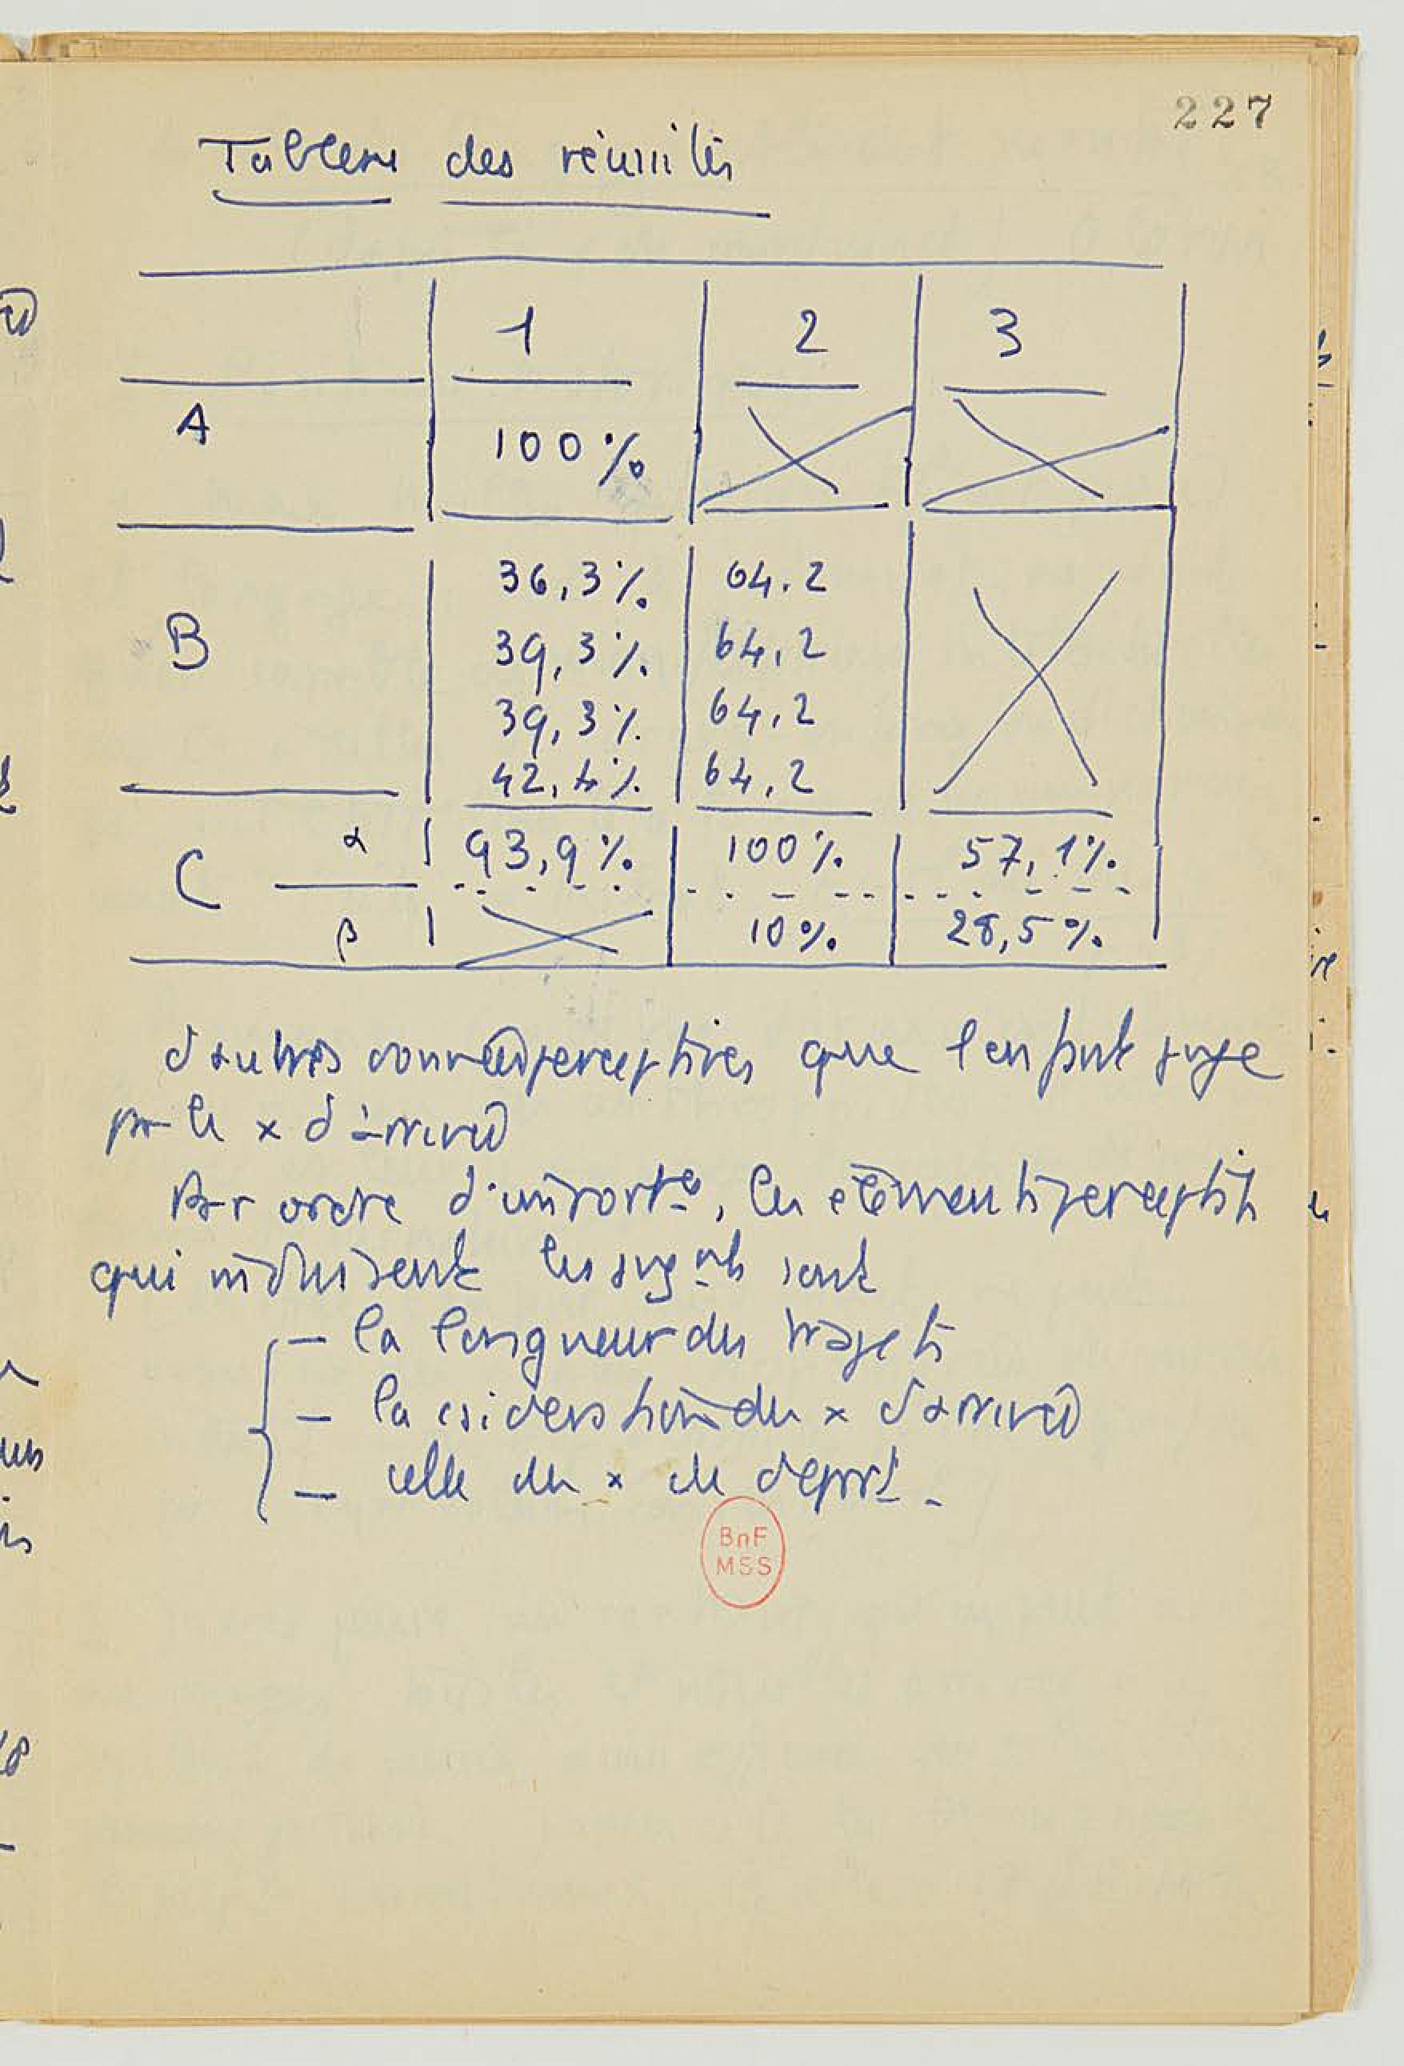 227
Tableau des réussites
1 2 3
A 100%
B 36,3% 64,2
39,3% 64,2
39,3% 64,2
42,4% 64,2
C α 93,9% 100% 57,1%
β 10% 28,5%
d'autres données perceptives que l'on peut juger
par le x d'arrivée
Par ordre d'importce, les éléments perceptifs
qui induisent les sujets sont
– la longueur des trajets
– la csidération du x d'arrivée
– celle du x de départ.
BnF
MSS